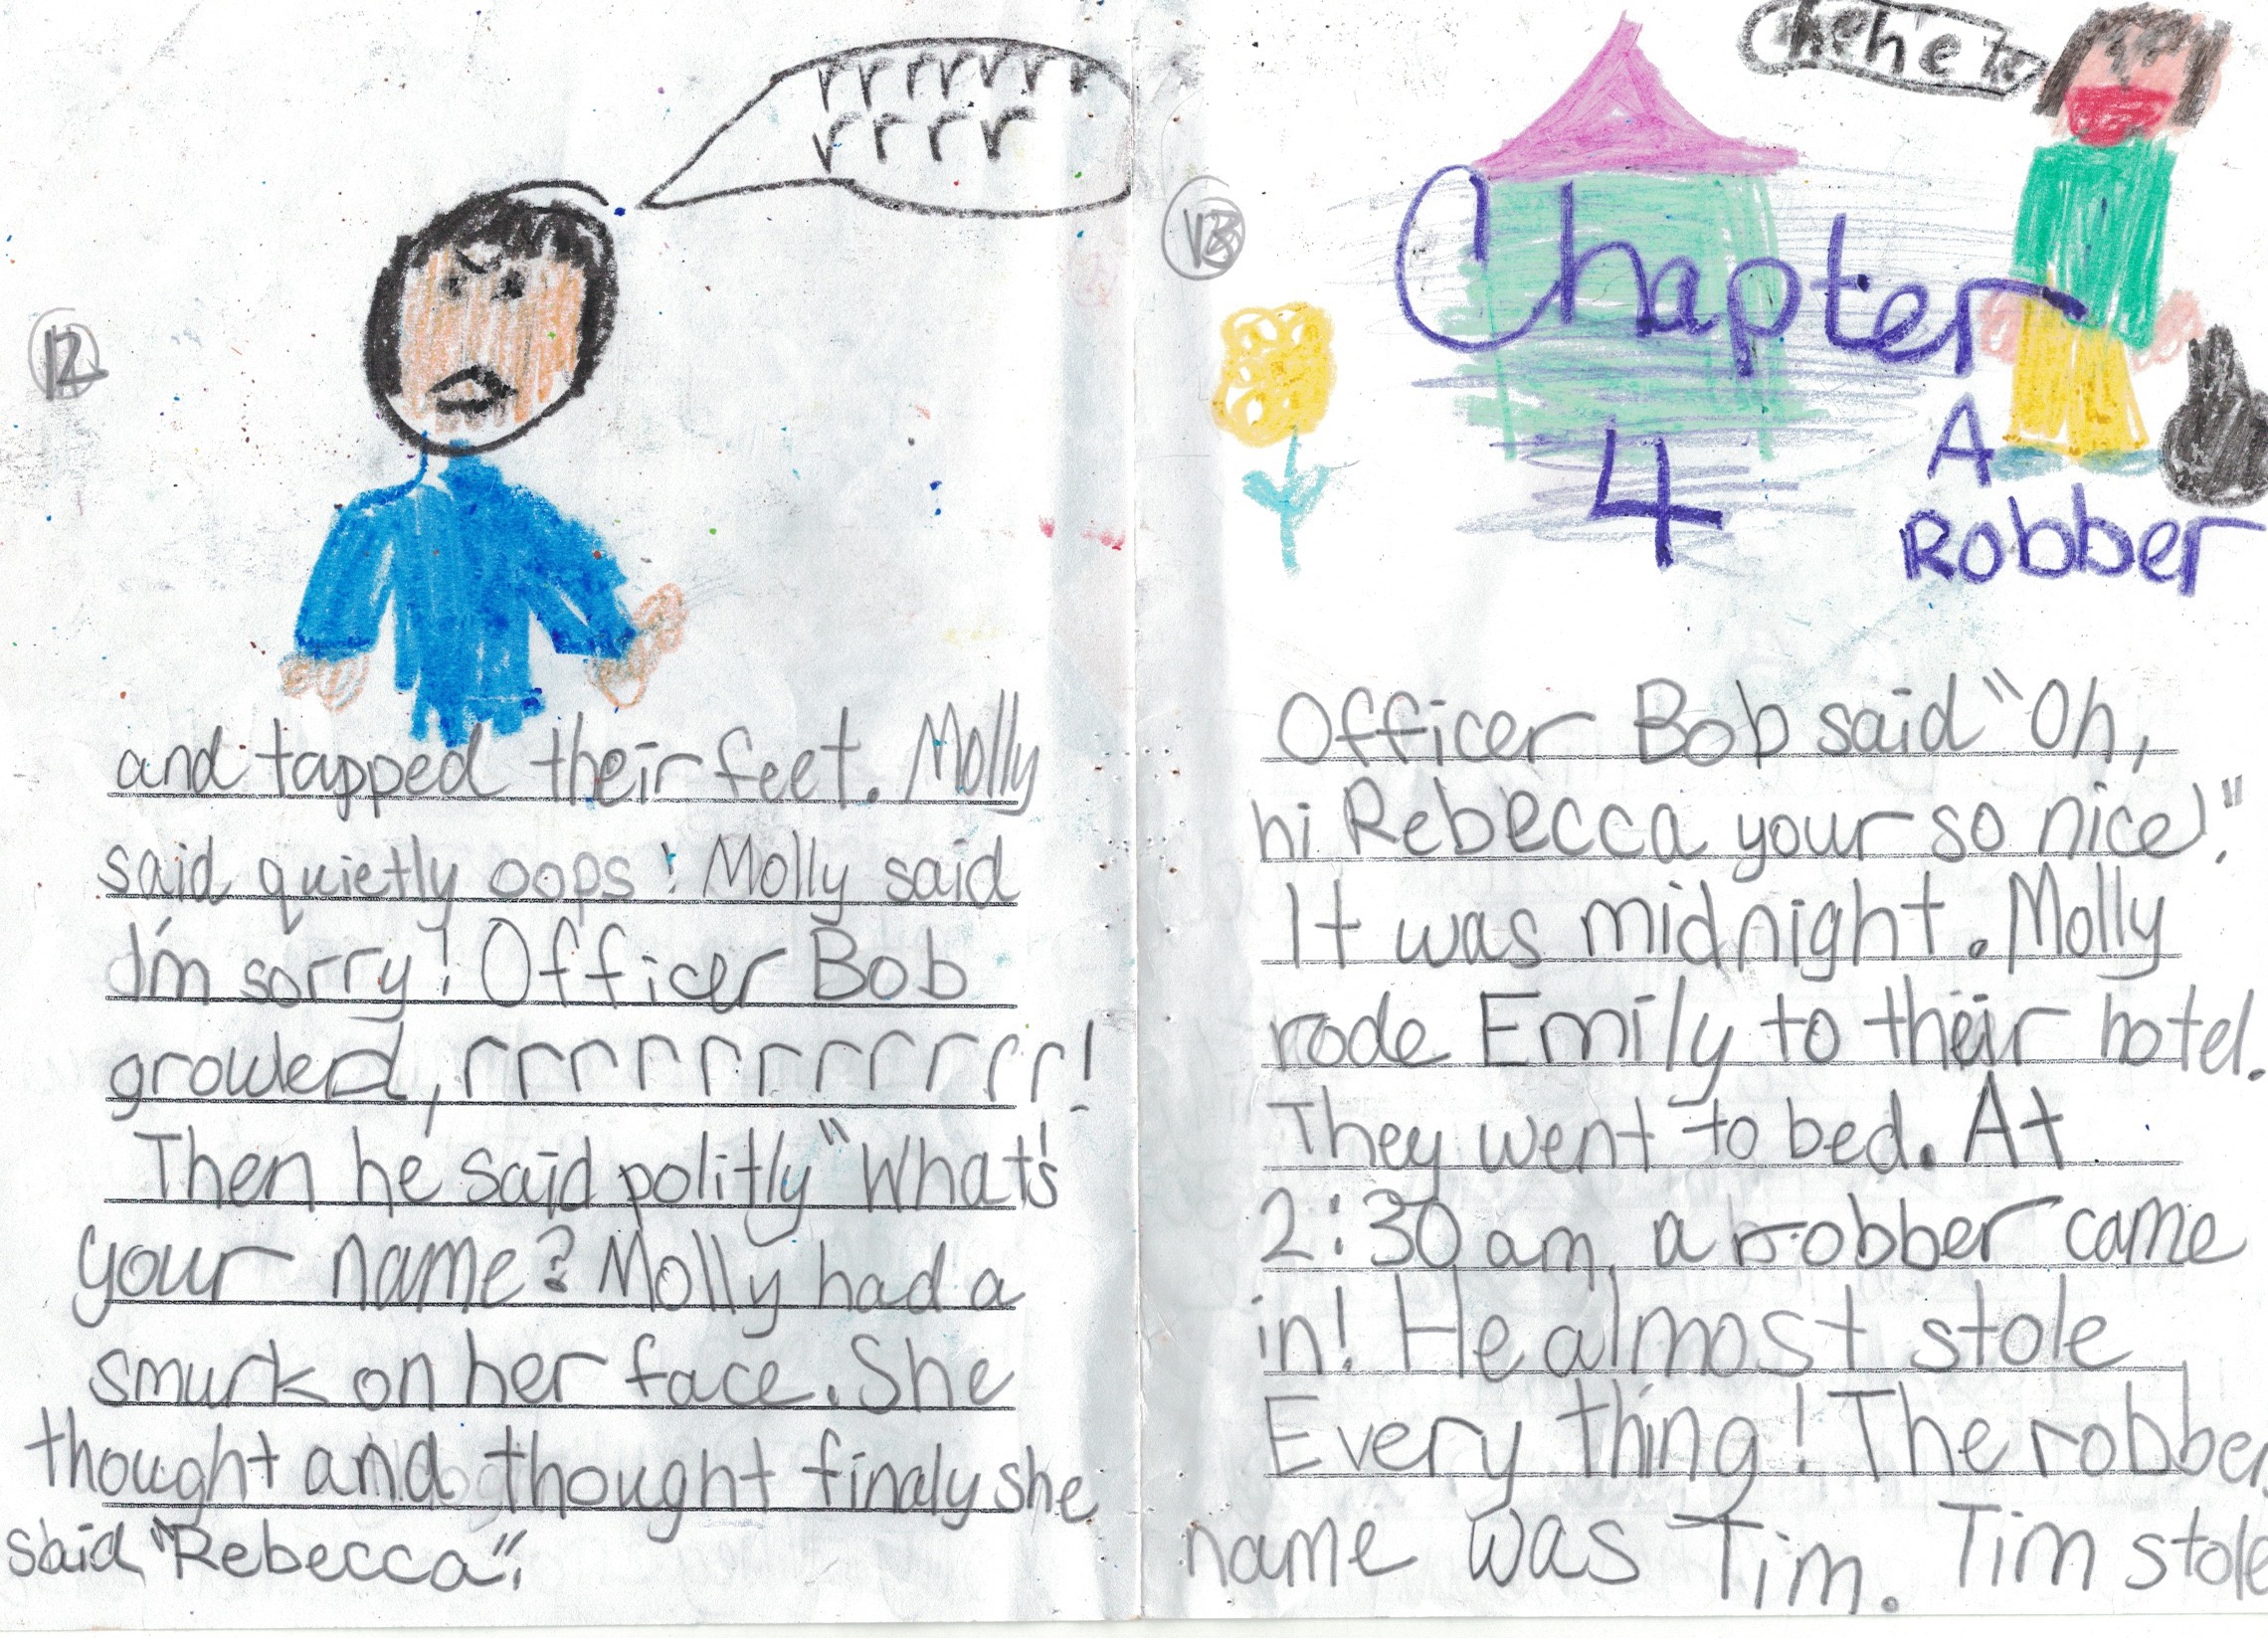 rrrrrrr
rrrr
12
and tapped their feet. Molly
said quietly oops! Molly said
I'm sorry! Officer Bob
growled, rrrrrrrrrrrrr!
Then he said politly "What's
your name? Molly had a
smurk on her face. She
thought and thought finaly she
said "Rebecca".
hehe
13
Chapter
4
A
Robber
Officer Bob said "Oh,
hi Rebecca your so nice!"
It was midnight. Molly
rode Emily to their hotel.
They went to bed. At
2:30 am, a robber came
in! He almost stole
Every thing! The robber
name was Tim. Tim stole